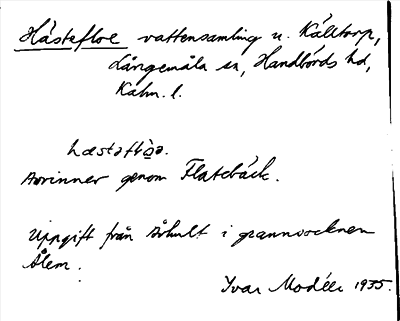 Hästefloe vattensamling u. Källtorp,
Långemåla sn, Handbörds hd,
Kalm. l.
hæstəflo̲a.
Avrinner genom Flatebäck.
Uppgift från Århult i grannsocknen
Ålem.
Ivar Modéer 1935.